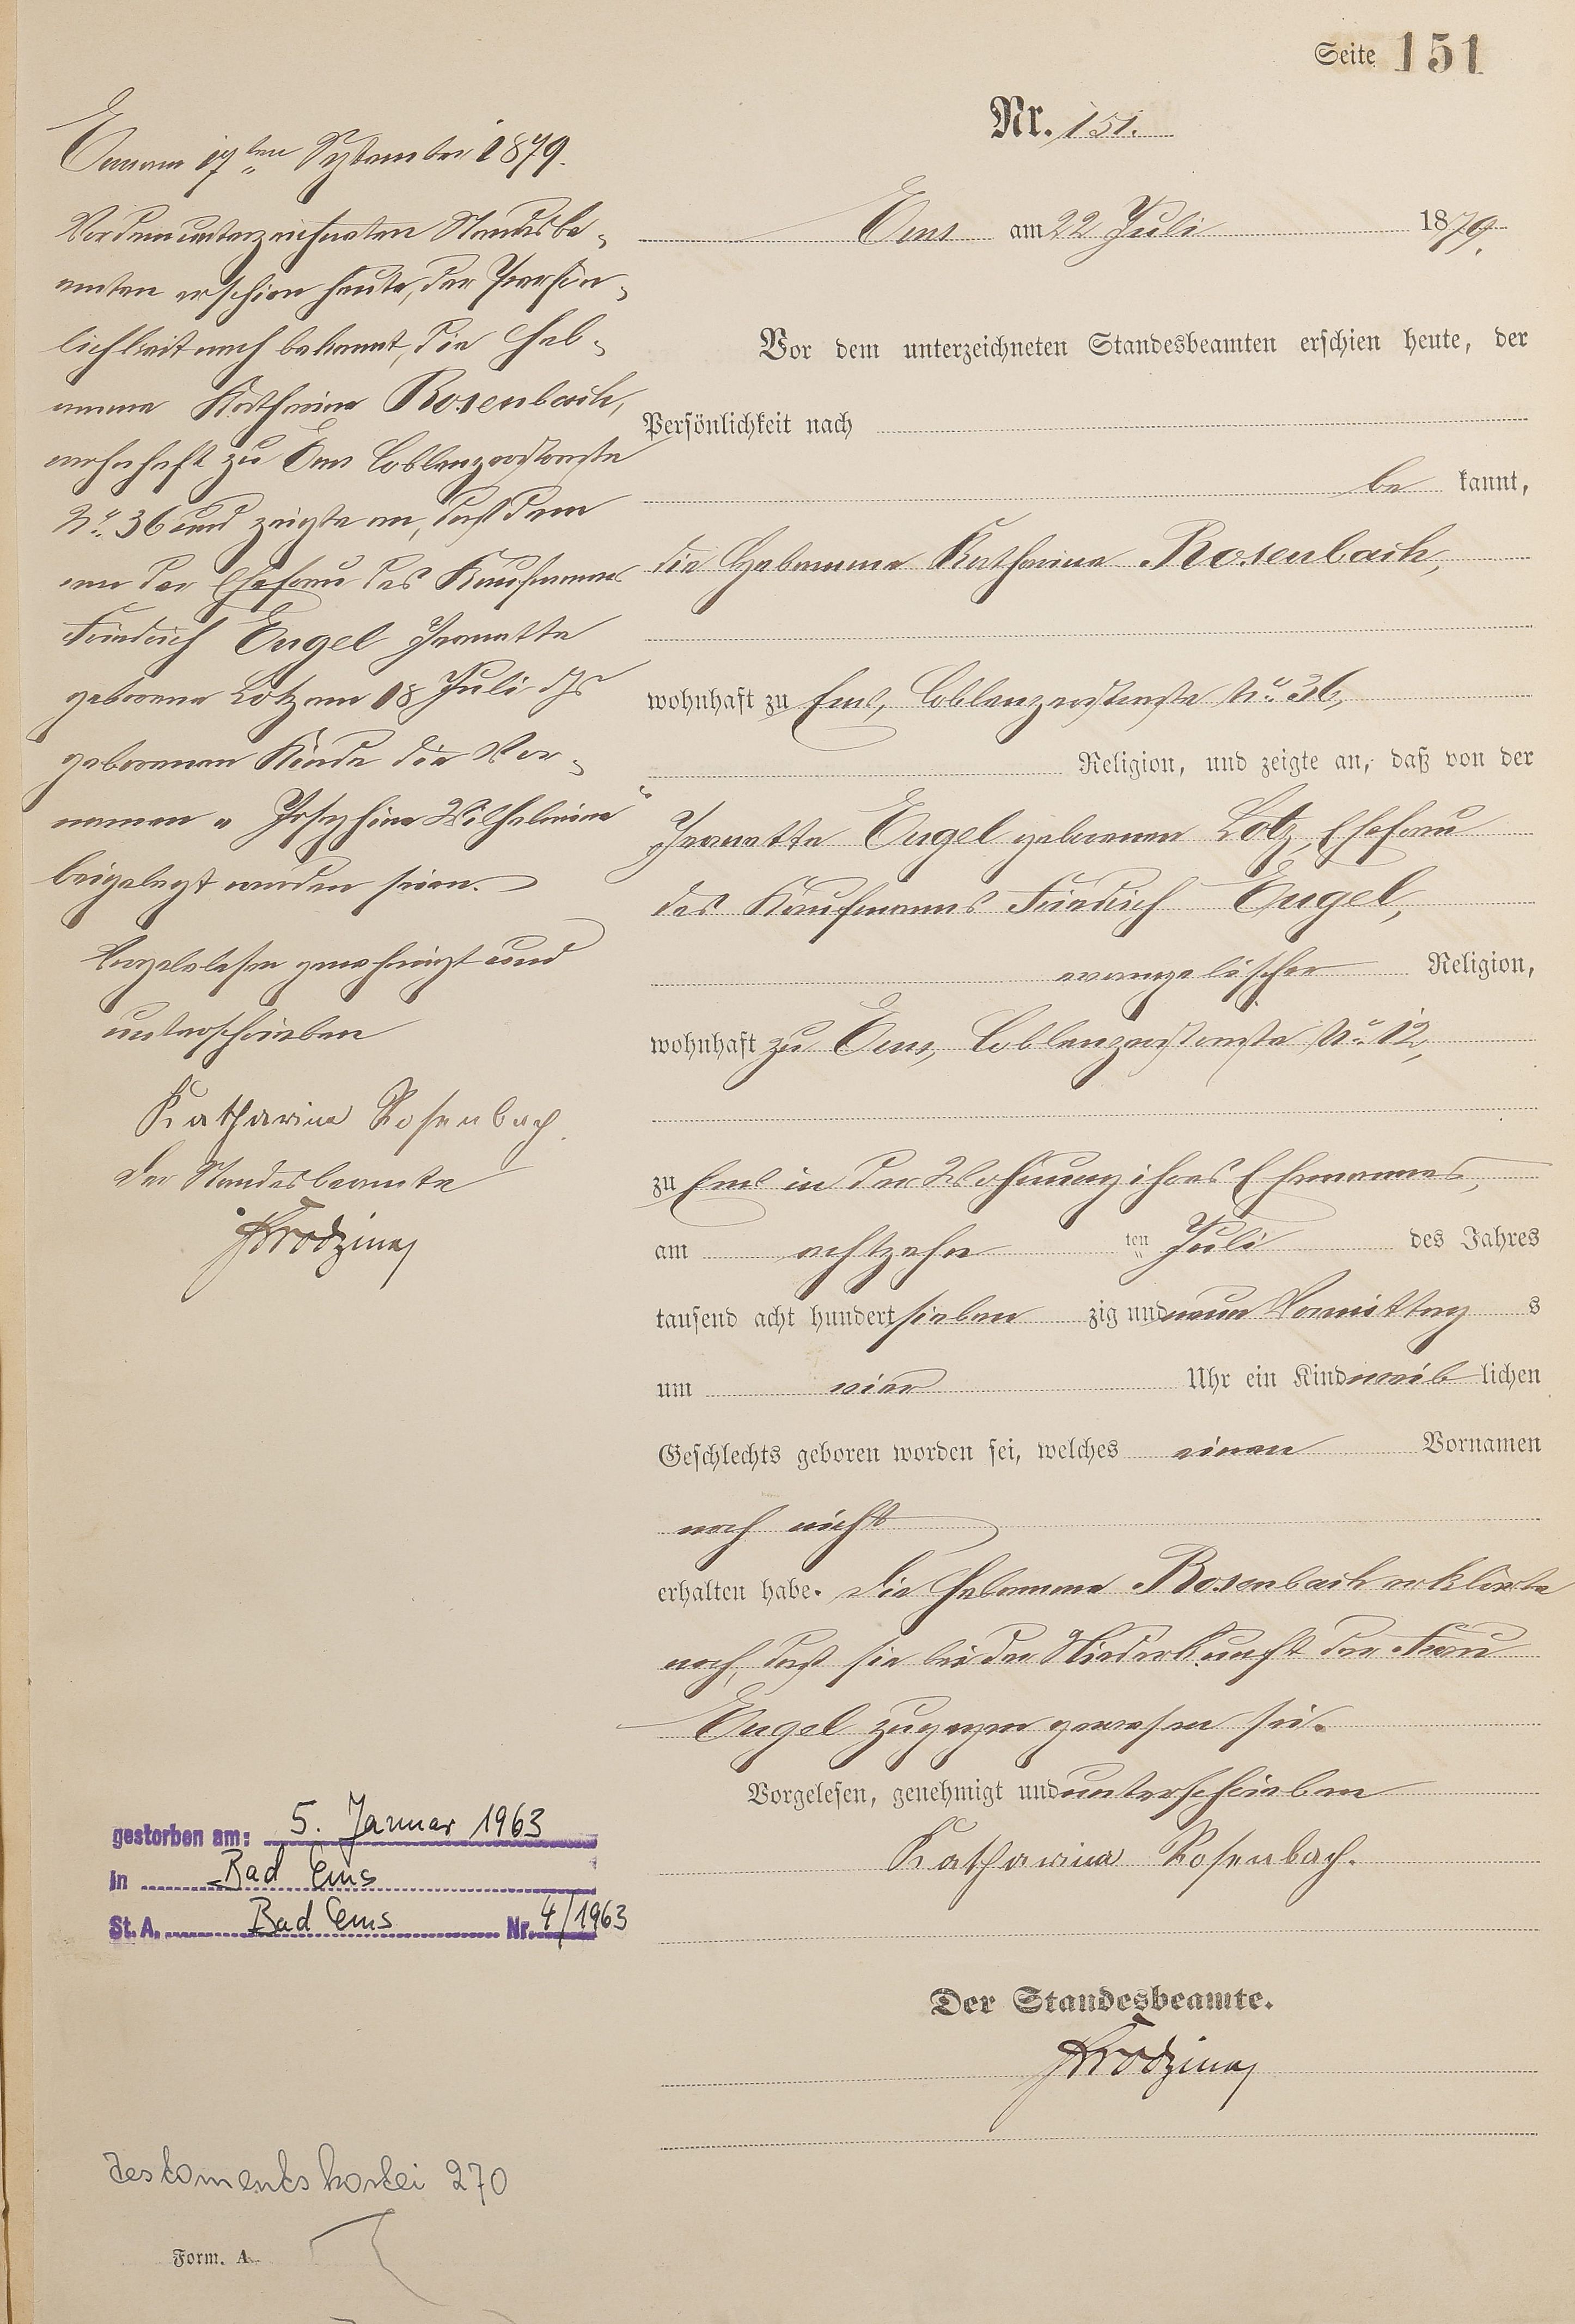 Seite 151
Nr. 151.
Ems am 22 Juli 1879.
Vor dem unterzeichneten Standesbeamten erschien heute, der
Persönlichkeit nach
be kannt,
die Hebamme Katharina Rosenbach,
wohnhaft zu Ems, Coblenzerstraße No. 36,
Religion, und zeigte an, daß von der
Jeanette Engel geborenen Lotz, Ehefrau
des Kaufmanns Friedrich Engel,
evangelischer Religion,
wohnhaft zu Ems, Coblenzerstraße No. 12,
zu Ems in der Wohnung ihres Ehemannes,
am achtzehn ten Juli des Jahres
tausend acht hundert sieben zig und neun Vormittag s
um vier Uhr ein Kind weib lichen
Geschlechts geboren worden sei, welches einen Vornamen
noch nicht
erhalten habe. Die Hebamme Rosenbach erklärte
noch, daß sie bei der Niederkunft der Frau
Engel zugegen gewesen sei.
Vorgelesen, genehmigt und unterschrieben
Katharina Rosenbach.
Der Standesbeamte.
Ems am 17ten September 1879.
Vor dem unterzeichneten Standesbe-
amten erschien heute, der Persön-
lichkeit nach bekannt, die Heb-
amme Katharina Rosenbach,
wohnhaft zu Ems Coblenzerstraße
No. 36 und zeigte an, daß dem
von der Ehefrau des Kaufmanns
Friedrich Engel Jeanette
geborene Lotz am 18 Juli ds Js
geborenen Kinde die Vor-
namen "Josephine Wilhelmine"
beigelegt worden seien.
Vorgelesen genehmigt und
unterschrieben
Katharina Rosenbach.
Der Standesbeamte
gestorben am: 5. Januar 1963
in Bad Ems
St. A. Bad Ems Nr. 4/1963
Testamentskartei 270
Form. A.